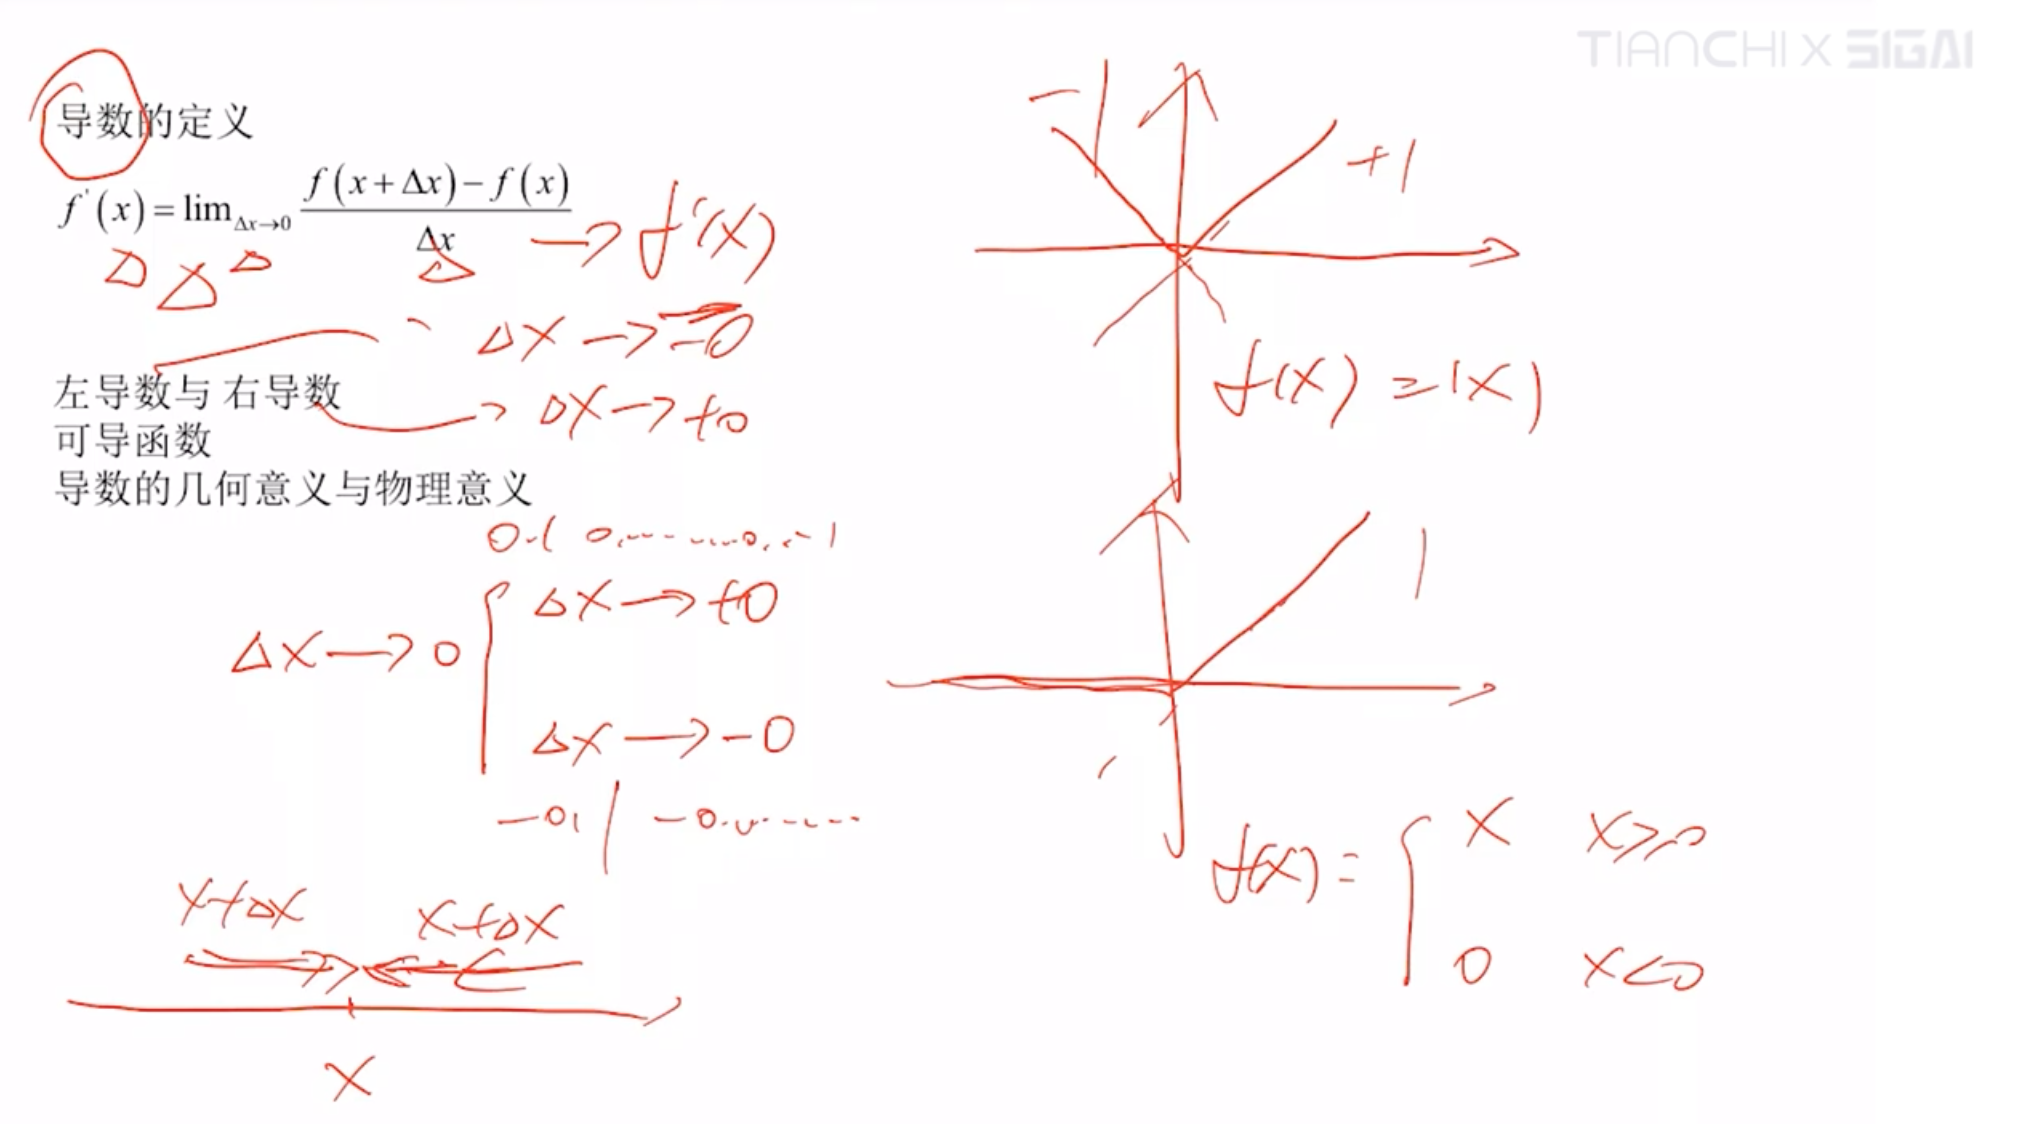 TIANCHI X SIGAI
导数的定义
f'(x)=lim_{Δx→0} \frac{f(x+Δx)-f(x)}{Δx} → f'(x)
Δ Δ Δ Δ
Δx → -0
左导数与 右导数 → Δx → +0
可导函数
导数的几何意义与物理意义
0.1 0.......0...1
Δx → 0 { Δx → +0
Δx → -0
-0.1 -0.0......
x+Δx x+Δx
x
-1 +1
f(x) = |x|
1
f(x) = { x x≥0
0 x<0